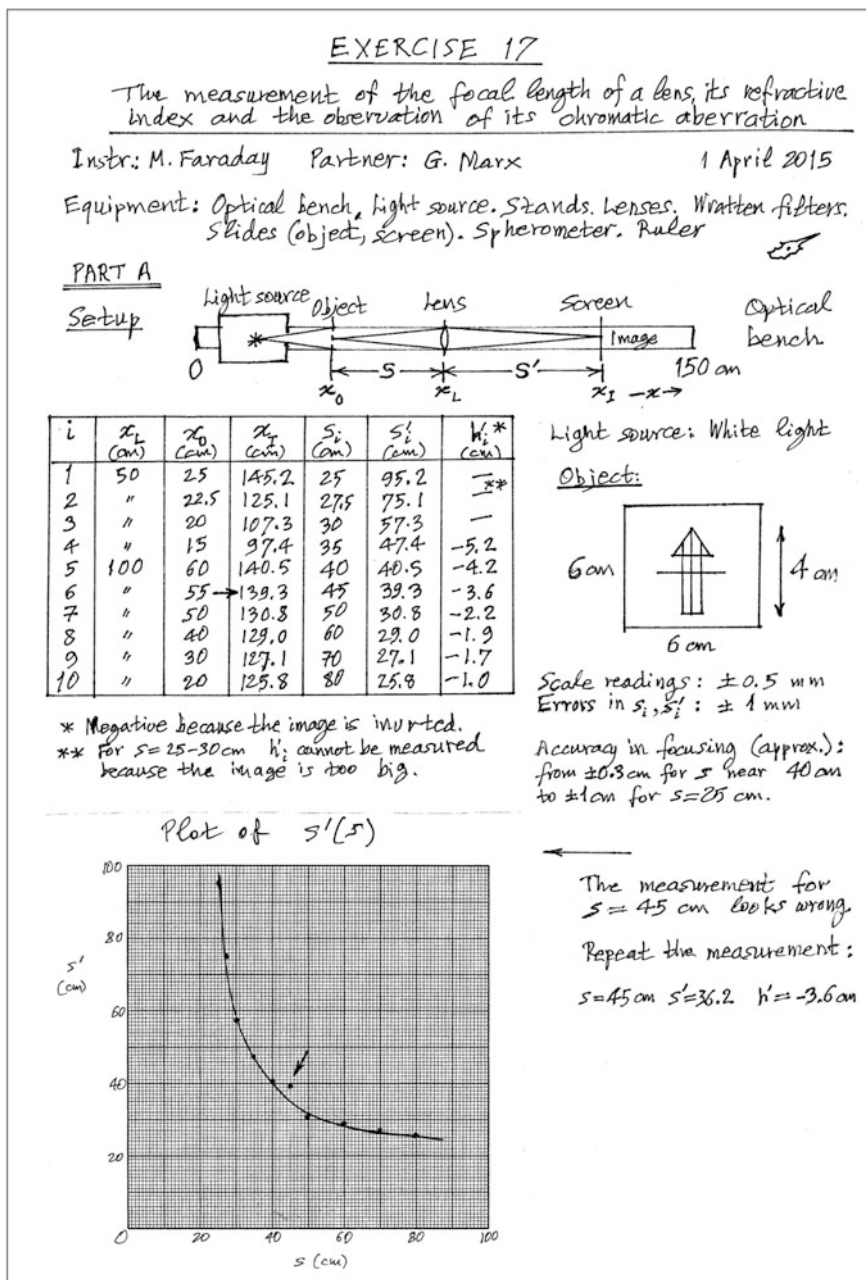 EXERCISE 17
The measurement of the focal length of a lens, its refractive
index and the observation of its chromatic aberration
Instr.: M. Faraday Partner: G. Marx 1 April 2015
Equipment: Optical bench, Light source. Stands. Lenses. Wratten filters.
Slides (object, screen). Spherometer. Ruler
PART A
Setup
Light source Object Lens Screen Optical
bench
* Image
0 S S' 150 cm
x_O x_L x_I -x→
i x_L (cm) x_O (cm) x_I (cm) s_i (cm) s'_i (cm) h'_i* (cm)
1 50 25 145.2 25 95.2 —
2 " 22.5 125.1 27.5 75.1 —**
3 " 20 107.3 30 57.3 —
4 " 15 97.4 35 47.4 -5.2
5 100 60 140.5 40 40.5 -4.2
6 " 55→ 139.3 45 39.3 -3.6
7 " 50 130.8 50 30.8 -2.2
8 " 40 129.0 60 29.0 -1.9
9 " 30 127.1 70 27.1 -1.7
10 " 20 125.8 80 25.8 -1.0
* Negative because the image is inverted.
** For s=25-30cm h'_i cannot be measured
because the image is too big.
Light source: White light
Object:
6cm 4 cm
6 cm
Scale readings: ±0.5 mm
Errors in s_i, s'_i: ± 1 mm
Accuracy in focusing (approx.):
from ±0.3cm for s near 40 cm
to ±1cm for s=25 cm.
Plot of s'(s)
100
80
s'
(cm)
60
40
20
0 20 40 60 80 100
s (cm)
The measurement for
s = 45 cm looks wrong
Repeat the measurement:
s=45cm s'=36.2 h'=-3.6cm